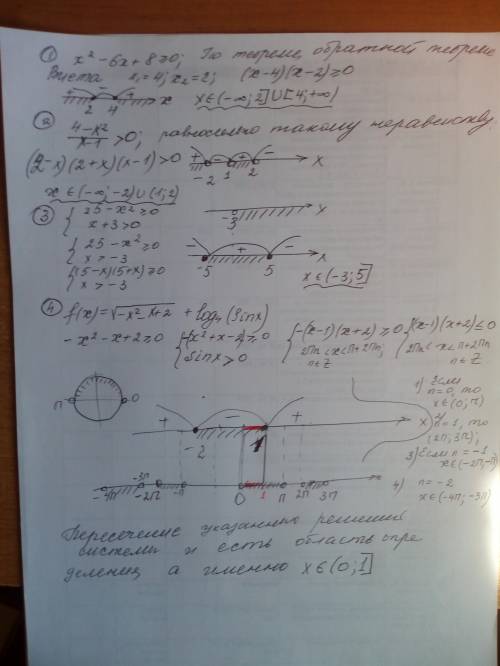 ① x² - 6x + 8 ≥ 0; По теореме, обратной теореме
Виета x₁ = 4; x₂ = 2; (x-4)(x-2) ≥ 0
+ - + x x ∈ (-∞; 2] ∪ [4; +∞)
2 4
② (4-x²)/(x-1) > 0; равносильно такому неравенству
(2-x)(2+x)(x-1) > 0 + - + - x
-2 1 2
x ∈ (-∞; -2) ∪ (1; 2)
③ { 25 - x² ≥ 0
x + 3 > 0
-3 x
{ 25 - x² ≥ 0
x > -3
{ (5-x)(5+x) ≥ 0
x > -3
- + - x
-5 5
x ∈ (-3; 5]
④ f(x) = √(-x² - x + 2) + log₇(sinx)
-x² - x + 2 ≥ 0 { -(x² + x - 2) ≥ 0
sinx > 0
{ -(x-1)(x+2) ≥ 0
2πn < x < π + 2πn;
n ∈ Z
{ (x-1)(x+2) ≤ 0
2πn < x < π + 2πn
n ∈ Z
π 0
+ - + x
-2 1
1) Если
n = 0, то
x ∈ (0; π)
2)
n = 1, то
(2π; 3π);
3) Если n = -1
x ∈ (-2π; -π)
4) n = -2
x ∈ (-4π; -3π)
-4π -3π -2π -π 0 1 π 2π 3π
Пересечение указанных решений
системы и есть область опре
деления, а именно x ∈ (0; 1]